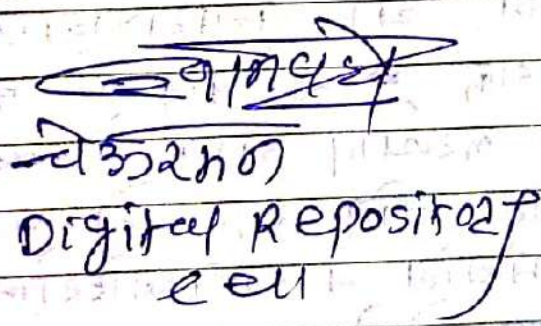 चेअरमन
Digital Repository
cell